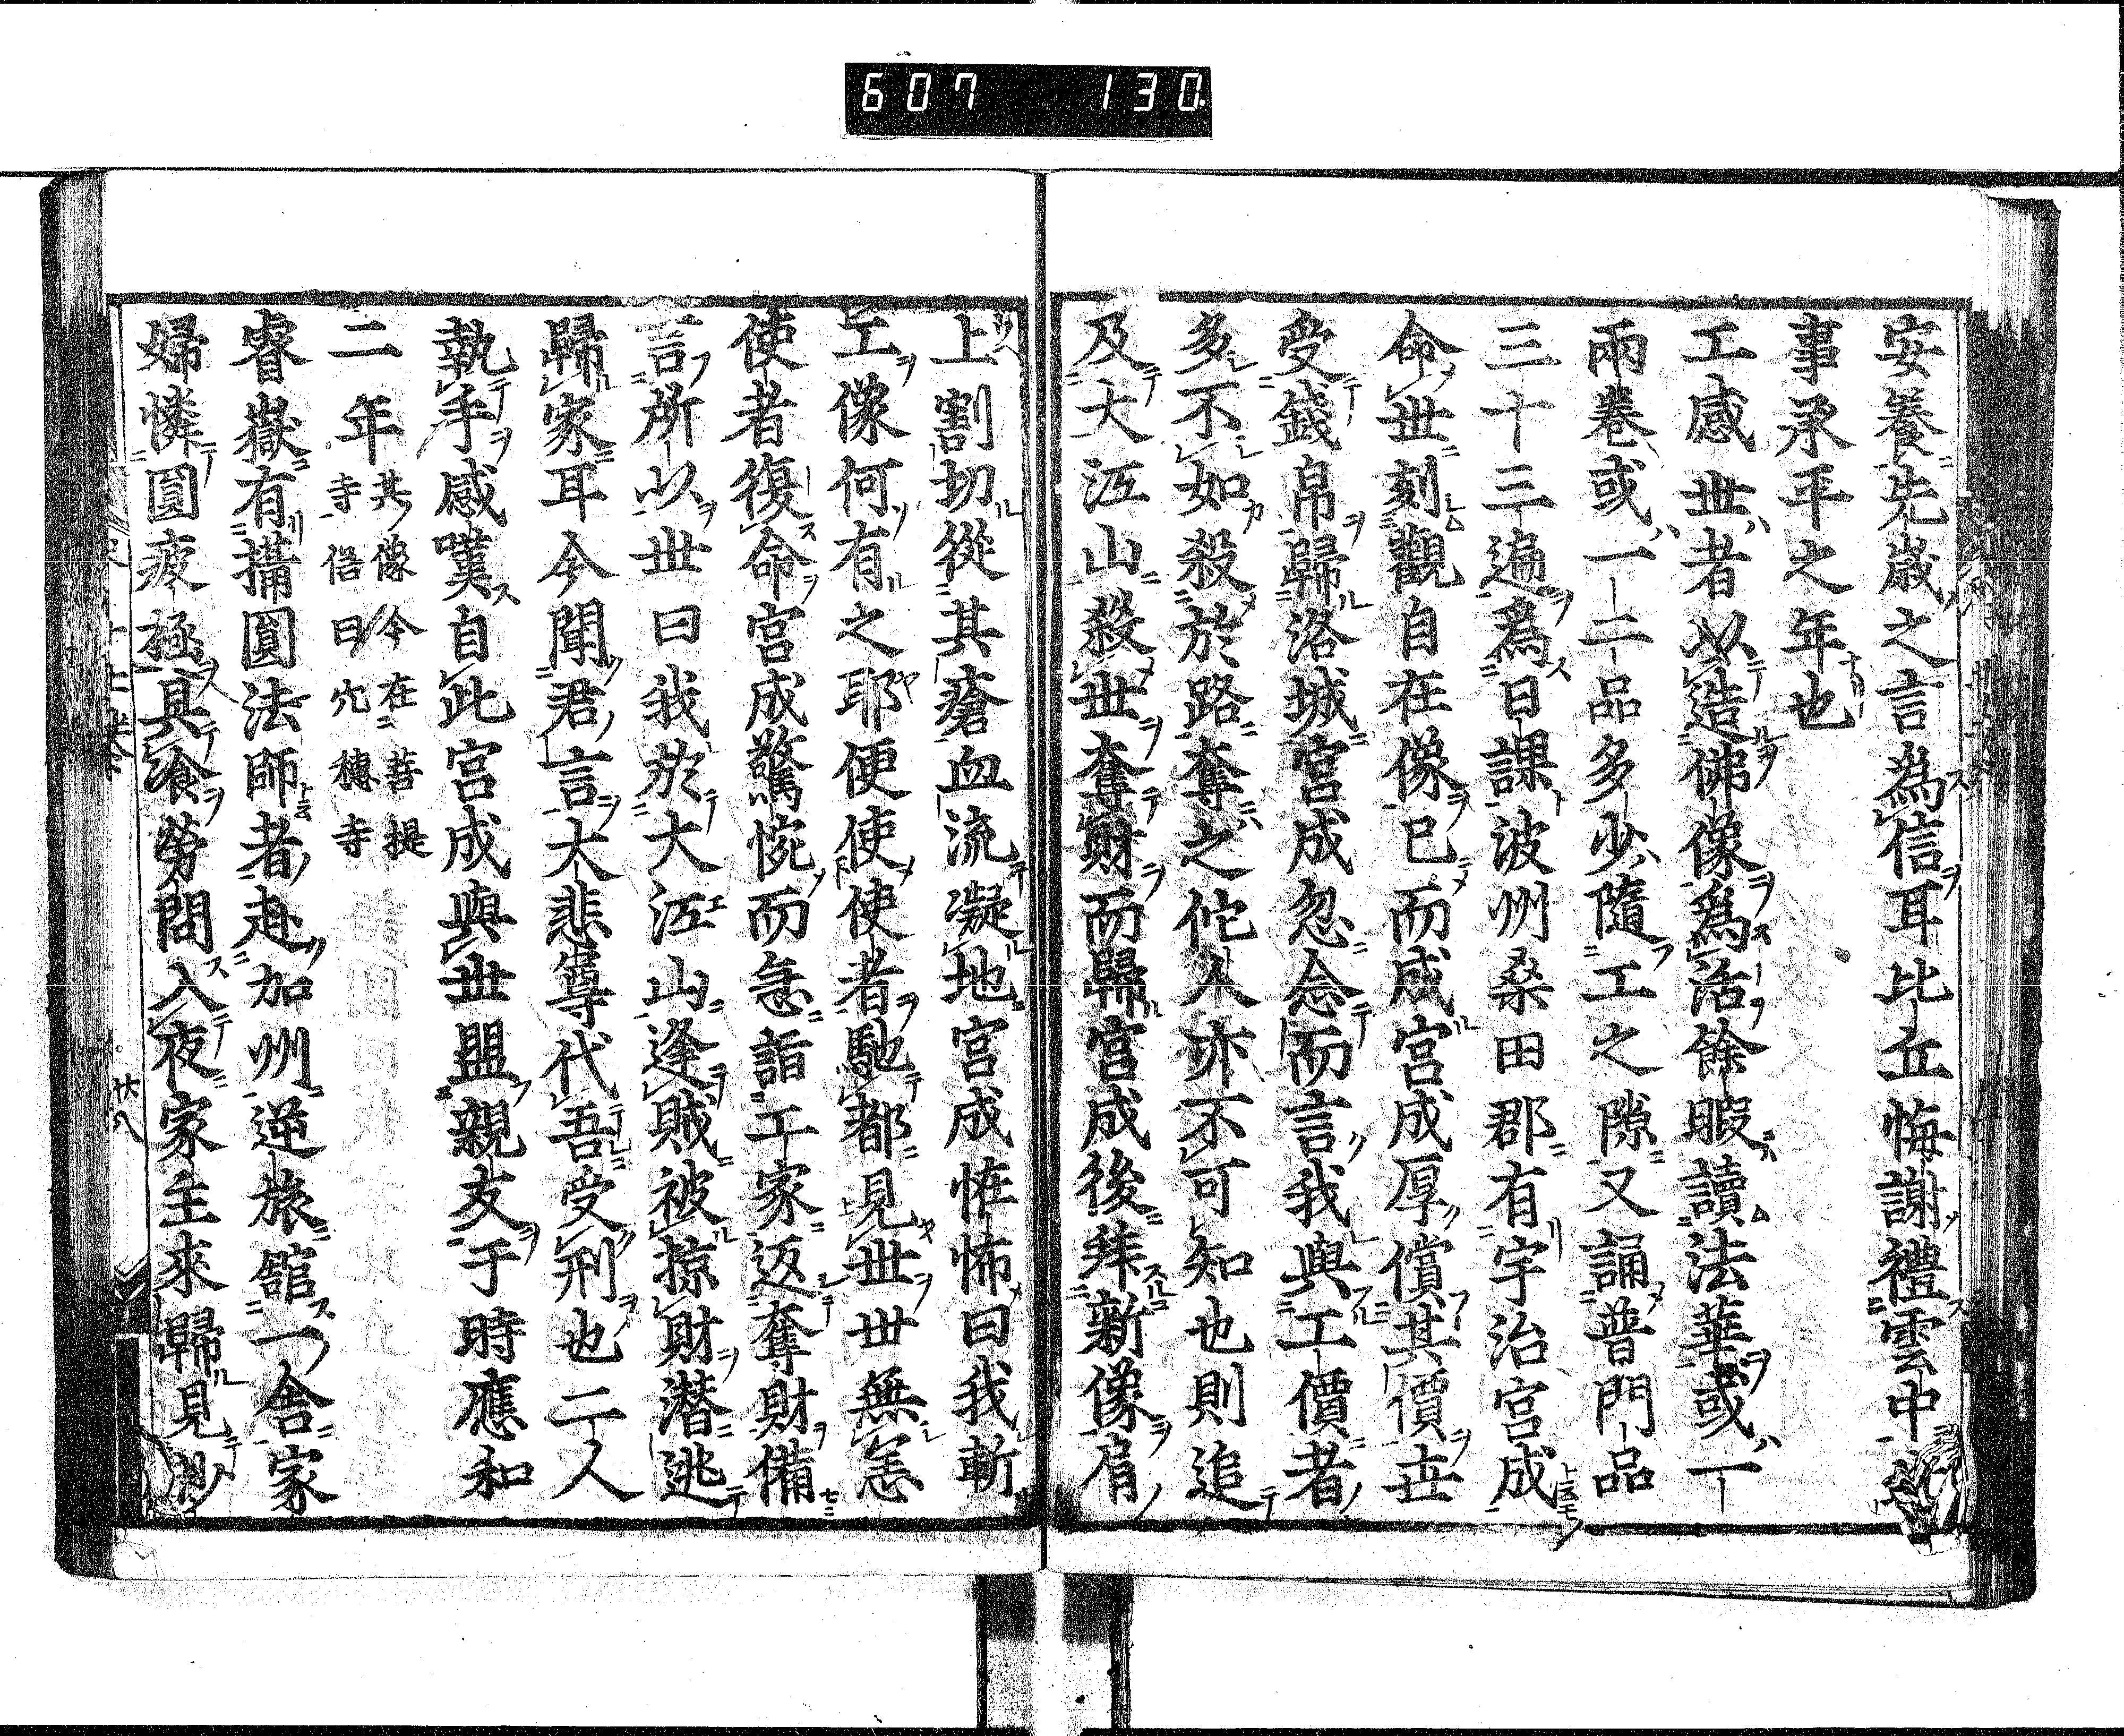 607 130
安養先歳之言爲信耳比丘悔謝禮雲中
事承平之年也
工感世者以造佛像爲活餘暇讀法華或一
兩卷或一二品多少隨工之隙又誦普門品
三十三遍爲日課波州桑田郡有宇治宮成
命世刻觀自在像已而成宮成厚償其價世
受錢帛歸洛城宮成忽念而言我與工價者
多不如殺於路奪之佗人亦不可知也則追
及大江山殺世奪財而歸宮成後拜新像肩
上割切從其瘡血流凝地宮成恠怖曰我斬
工像何有之耶便使使者馳都見世世無恙
使者復命宮成驚惋而急詣工家返奪財備
言所以世曰我於大江山逢賊被掠財潜逃
歸家耳今聞君言大悲尊代吾受刑也二人
執手感嘆自此宮成與世盟親友于時應和
二年其像今在菩提
寺寺俗曰穴穗寺
睿嶽有攝圓法師者赴加州逆旅舘一舍家
婦憐圓疲極具飡勞問入夜家主來歸見沙
廿八